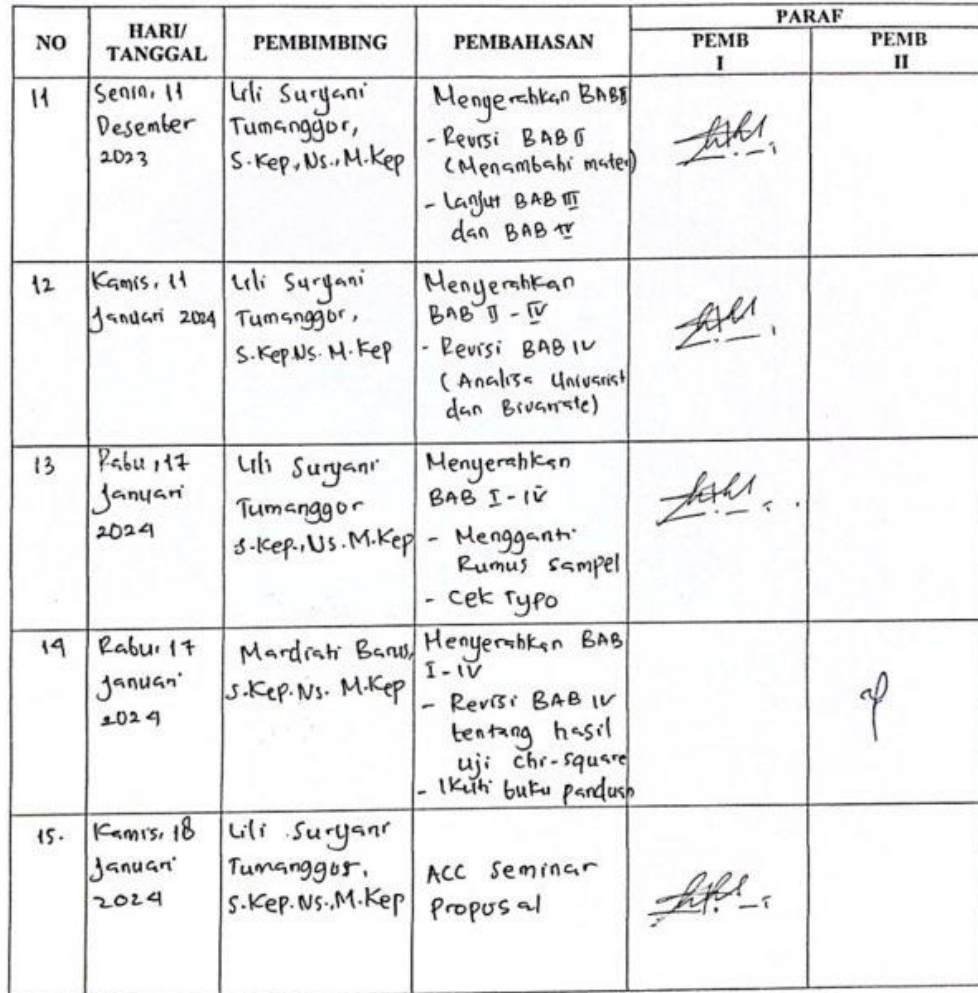 NO
HARI/
TANGGAL
PEMBIMBING
PEMBAHASAN
PARAF
PEMB
I
PEMB
II
11
Senin, 11
Desember
2023
Lili Suryani
Tumanggor,
S.Kep,Ns.,M.Kep
Menyerahkan BAB II
- Revisi BAB II
(Menambahi materi)
- Lanjut BAB III
dan BAB IV
12
Kamis, 11
Januari 2024
Lili Suryani
Tumanggor,
S.Kep.Ns. M.Kep
Menyerahkan
BAB II - IV
- Revisi BAB IV
(Analisa Univariat
dan Bivariate)
13
Rabu, 17
Januari
2024
Lili Suryani
Tumanggor
S.Kep.,Ns.M.Kep
Menyerahkan
BAB I - IV
- Mengganti
Rumus sampel
- Cek Typo
14
Rabu, 17
Januari
2024
Mardiati Barus,
S.Kep.Ns. M.Kep
Menyerahkan BAB
I - IV
- Revisi BAB IV
tentang hasil
uji chi-square
- Ikuti buku panduan
15.
Kamis, 18
Januari
2024
Lili Suryani
Tumanggor,
S.Kep.Ns.,M.Kep
ACC Seminar
Proposal